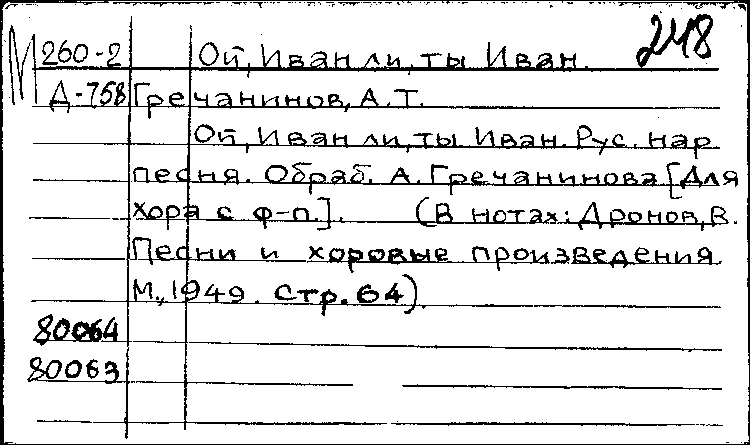 М 260-2 Ой, Иван ли, ты Иван. 248
Д-758 Гречанинов, А.Т.
Ой, Иван ли, ты Иван. Рус. нар
песня. Обраб. А. Гречанинова [Для
хора с ф-п.]. (В нотах: Дронов, В.
Песни и хоровые произведения.
М., 1949. Стр. 64).
80064
80063